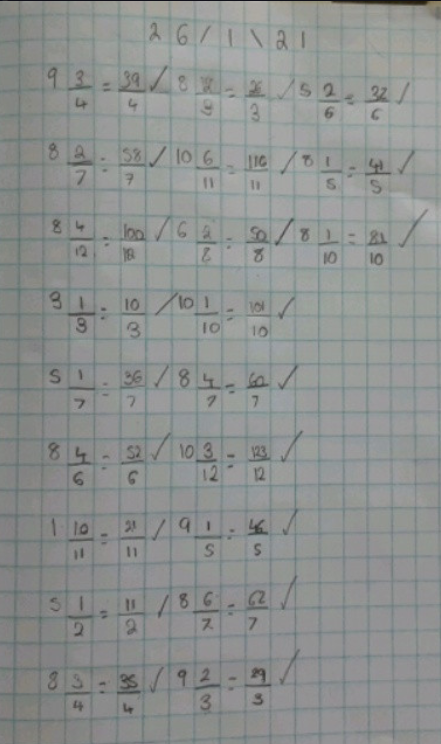 26/1\21
9 3/4 = 39/4 ✓ 8 2/3 = 26/3 ✓ 5 2/6 = 32/6 ✓
8 2/7 = 58/7 ✓ 10 6/11 = 116/11 ✓ 8 1/5 = 41/5 ✓
8 4/12 = 100/12 ✓ 6 2/8 = 50/8 ✓ 8 1/10 = 81/10 ✓
3 1/3 = 10/3 ✓ 10 1/10 = 101/10 ✓
5 1/7 = 36/7 ✓ 8 4/7 = 60/7 ✓
8 4/6 = 52/6 ✓ 10 3/12 = 123/12 ✓
1 10/11 = 21/11 ✓ 9 1/5 = 46/5 ✓
5 1/2 = 11/2 ✓ 8 6/7 = 62/7 ✓
8 3/4 = 35/4 ✓ 9 2/3 = 29/3 ✓